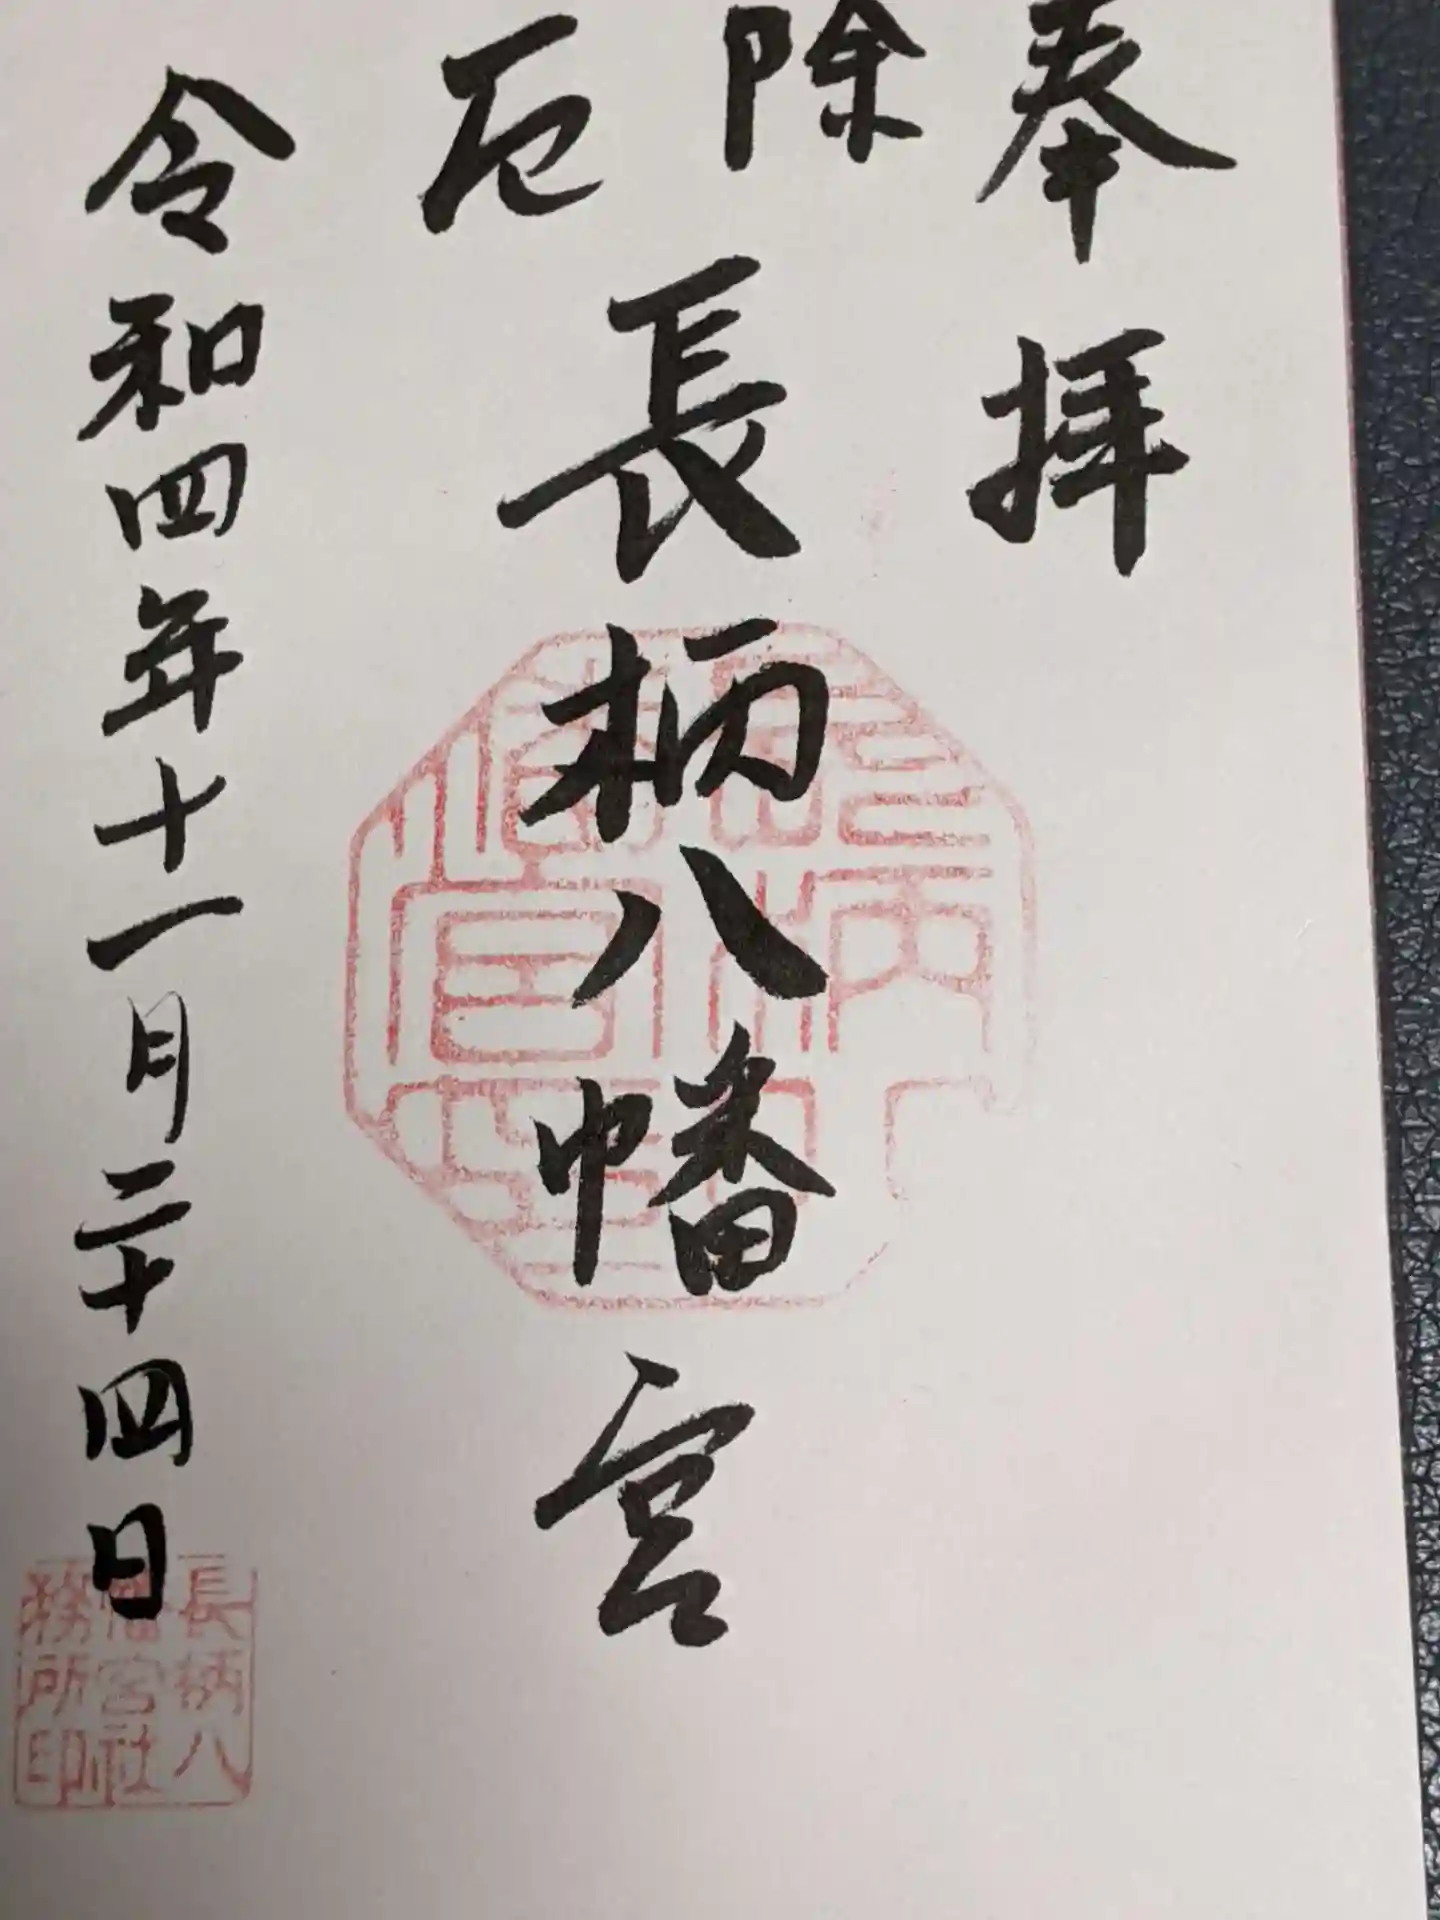 奉拝
除厄
長柄八幡宮
令和四年十一月二十四日
長柄八
幡宮社
務所印